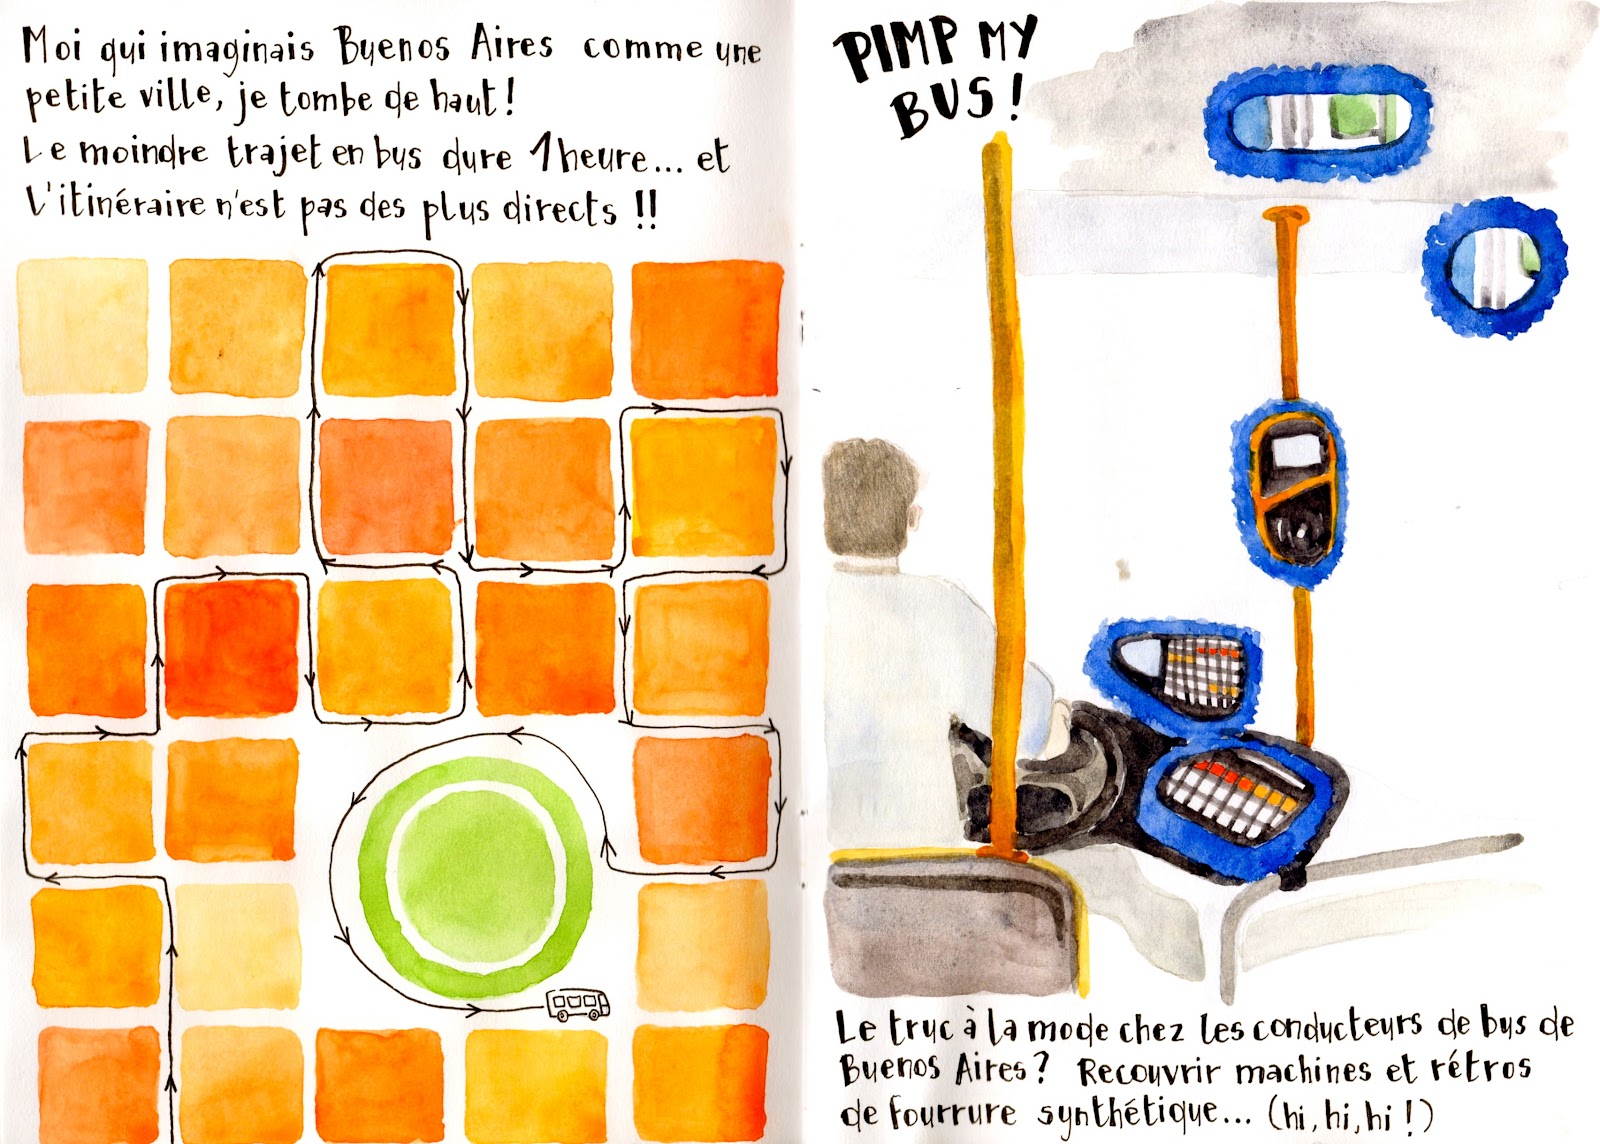 Moi qui imaginais Buenos Aires comme une
petite ville, je tombe de haut!
Le moindre trajet en bus dure 1 heure... et
L'itinéraire n'est pas des plus directs !!
PIMP MY
BUS!
Le truc à la mode chez les conducteurs de bus de
Buenos Aires? Recouvrir machines et rétros
de fourrure synthétique... (hi, hi, hi !)